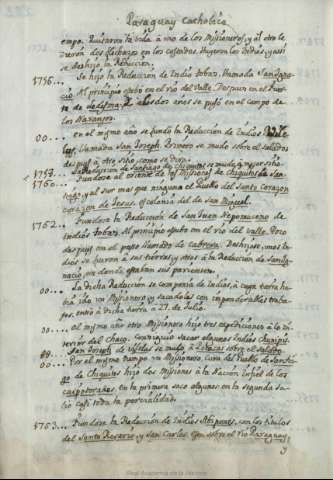 Paraguay Catholico
empo. Quitaron la vida à uno de los Missioneros, y al otro le
dieron dos flechazos en los costados. Huyeron los Indios, y assi
se deshizo la Reduccion.
1756... Se hizo la Reduccion de Indios Tobas, llamada San Igna-
cio. Al principio estubo en el rio del Valle. Despues en el Fuer-
te de Ledesma. A los dos años se pasò en el campo de
los Naranjos.
00... en el mismo año se fundò la Reduccion de Indios
llamada San Joseph. Primero se mudò sobre el salado
despues à otro sitio, como se dirà.
1757. La Reduccion de Santiago de Chiquitos se mudò à mejor sitio.
1760... Fundose al oriente de las Missiones de Chiquitos de San-
tiago, y al sur mas que ninguna el Pueblo del Santo Corazon
corazon de Jesus. Es colonia del de San Miguel.
1762... Fundose la Reduccion de San Juan Nepomuceno de
Indios Tobas. Al principio estubo en el rio del Valle. Poco
despues en el pasto llamado de Cabrera. Deshizose, unos In-
dios se fueron à sus tierras, y otros à la Reduccion de San Ig-
nacio, en donde estaban sus parientes.
00... La dicha Reduccion se componia de Indios, à cuya tierra ha-
bia ido un Missionero, y sacadolos con imponderables traba-
jos. entrò à dicha tierra à 27. de Julio.
00... el mismo año otro Missionero hizo tres expediciones à lo in-
terior del Chaco. Consiguiò sacar algunos Indios Chunipis.
00. San Joseph de Vilelas se mudò à Petacas sobre el salado.
00... Por el mismo tiempo un Missionero, cura del Pueblo de Santia-
go de Chiquitos hizo dos Misiones à la Nacion infiel de los
Caipotorades. en la primera sacò algunos. en la segunda sa-
liò casi toda la parcialidad.
1763... Fundose la Reduccion de Indios Abipones, con los titulos
del Santo Rosario, y San Carlos. Està sobre el rio Paraguay,
y
Real Academia de la Historia